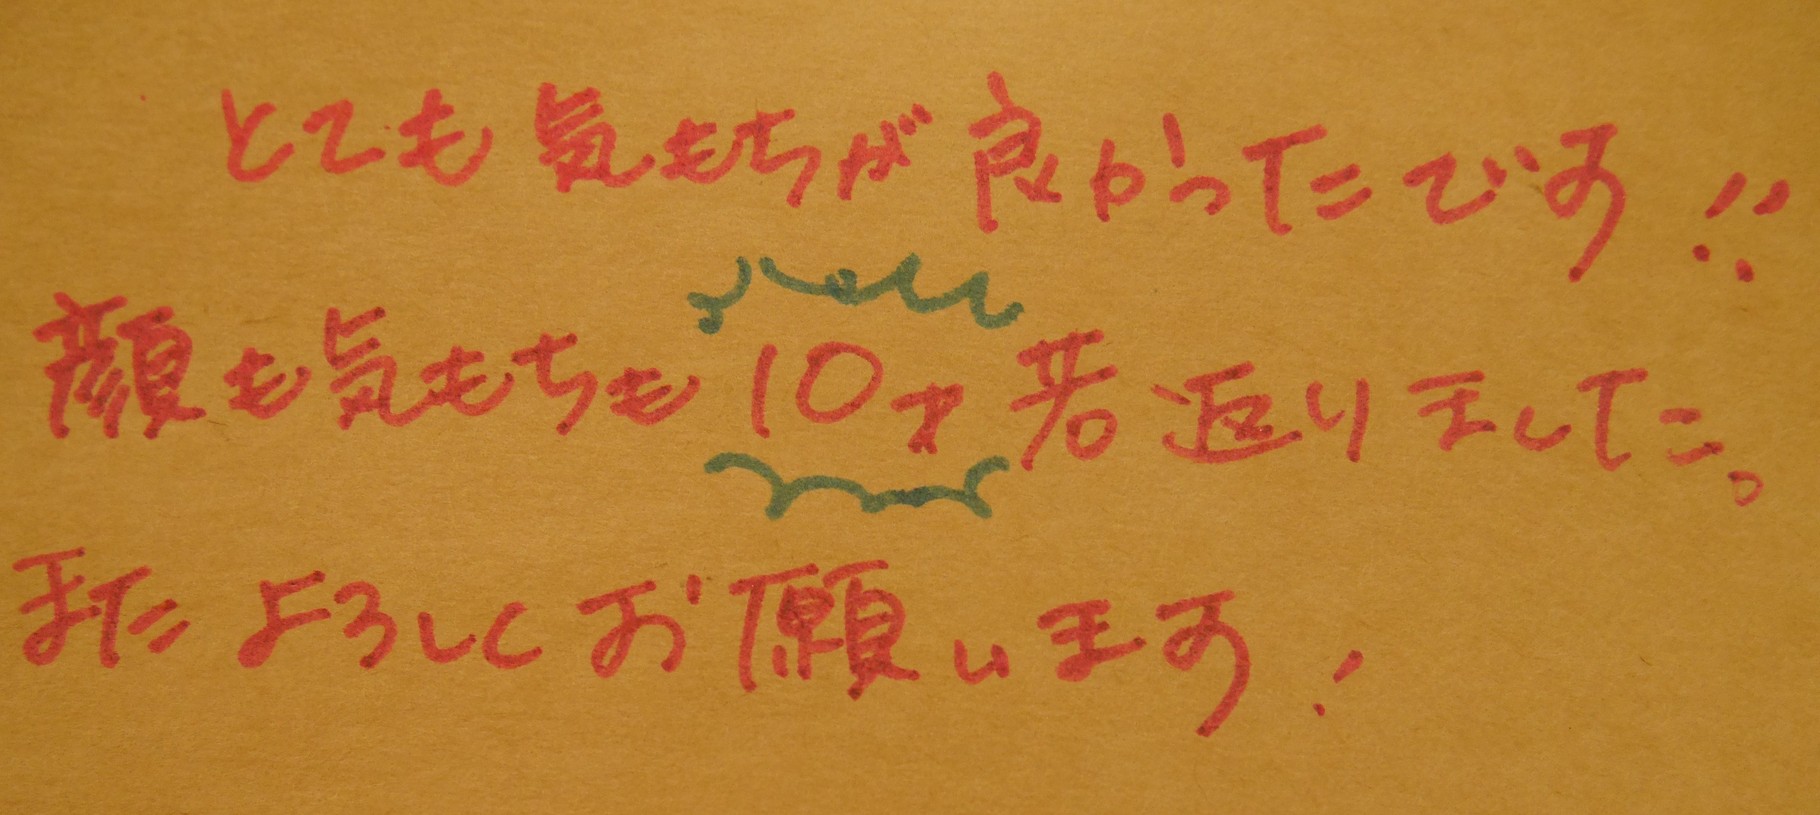 とても気もちが良かったです!!
顔も気もちも10才若返りました。
またよろしくお願いします!